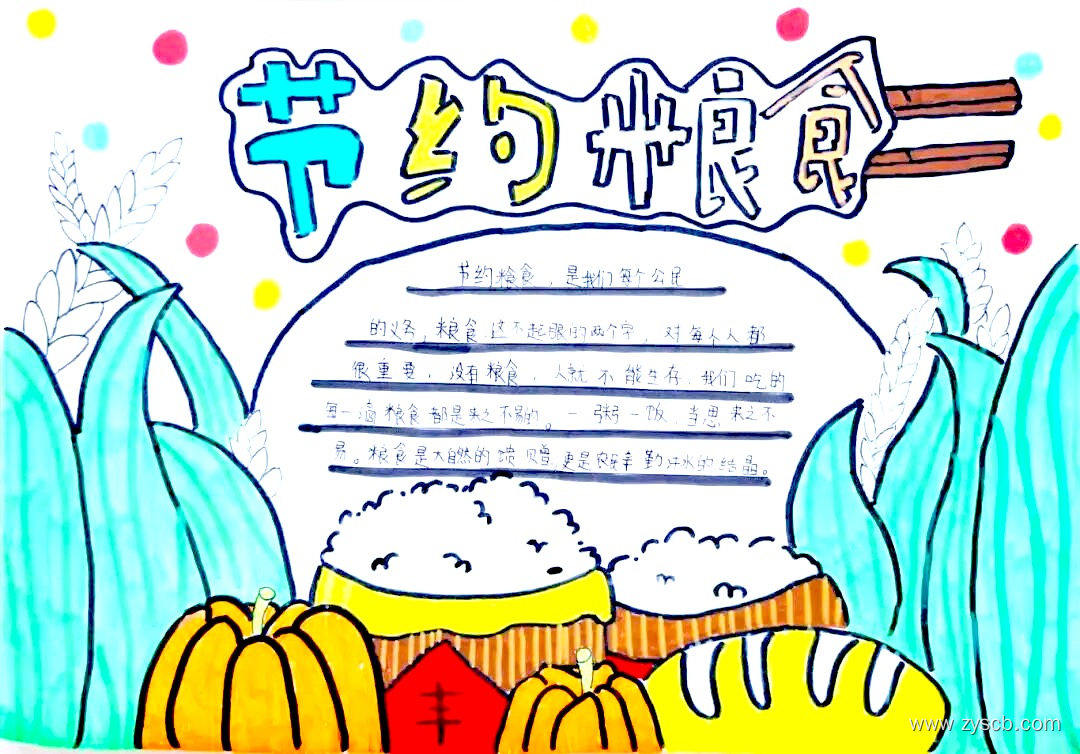 节约粮食
节约粮食，是我们每个公民
的义务，粮食这不起眼的两个字，对每个人都
很重要，没有粮食，人就不能生存，我们吃的
每一滴粮食都是来之不易的。一粥一饭，当思来之不
易。粮食是大自然的馈赠，更是农民辛勤汗水的结晶。
丰
www.zyscb.com